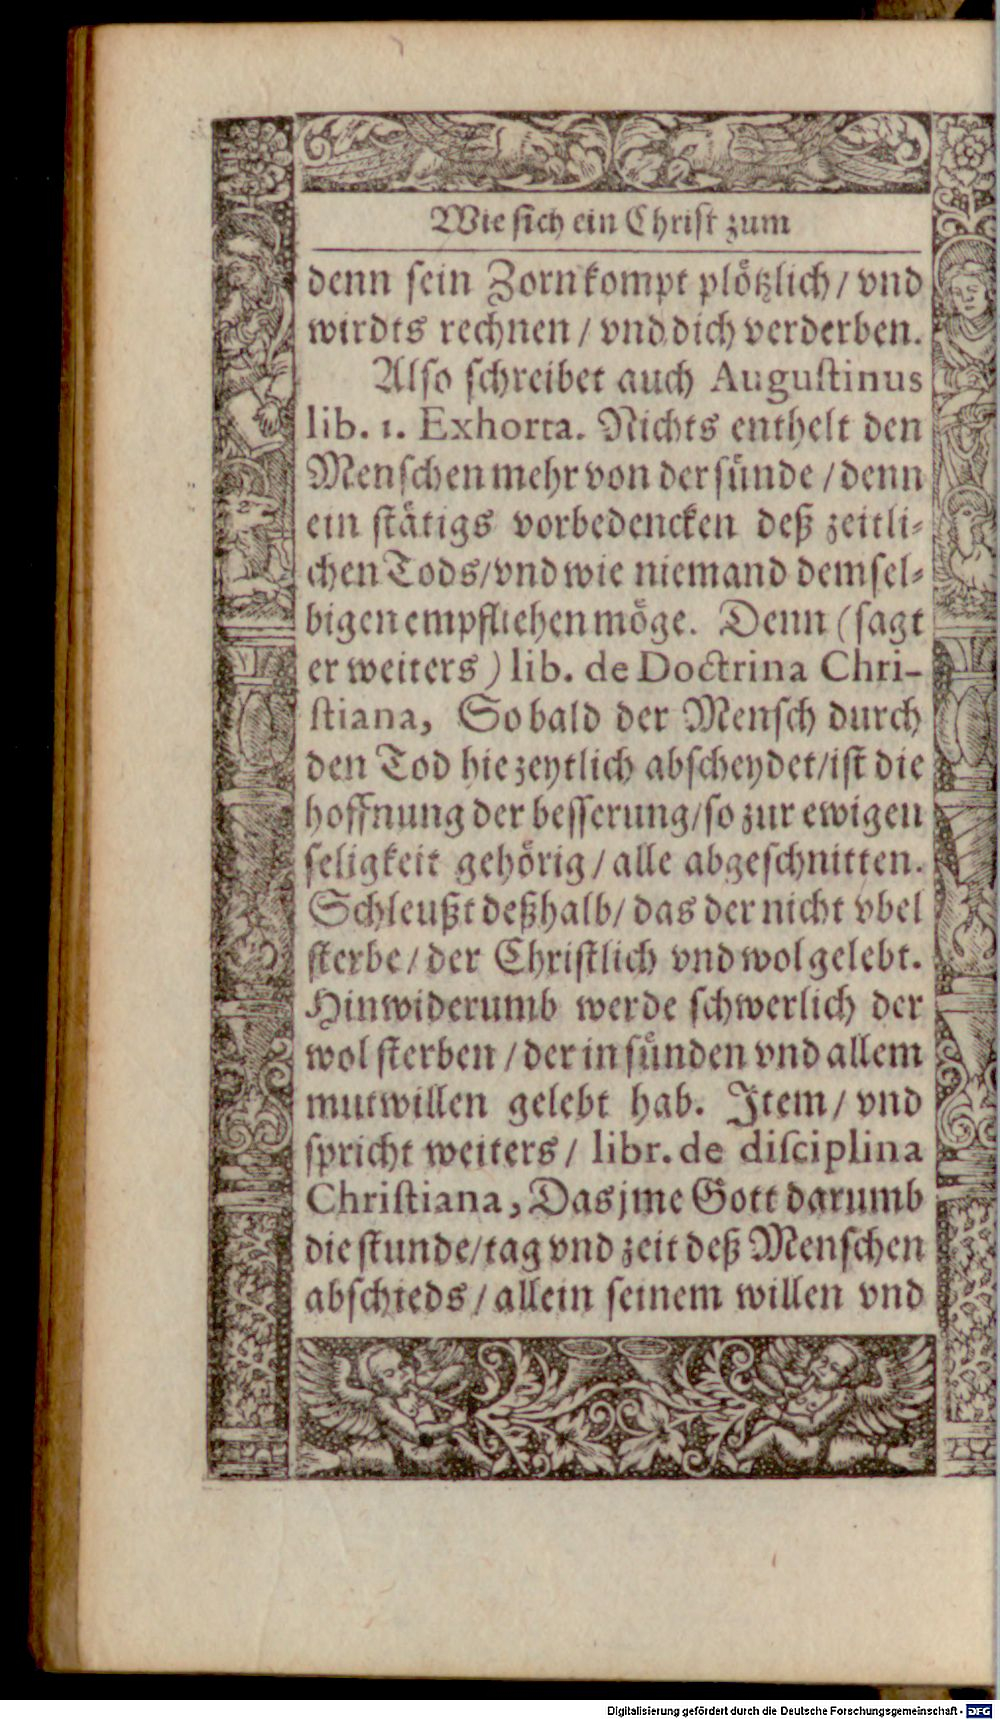 Wie sich ein Christ zum
denn sein Zorn kompt plötzlich / vnd
wirdts rechnen / vnd dich verderben.
Also schreibet auch Augustinus
lib. 1. Exhorta. Nichts enthelt den
Menschen mehr von der sünde / denn
ein stätigs vorbedencken deß zeitli-
chen Tods / vnd wie niemand demsel-
bigen empfliehen möge. Denn (sagt
er weiters) lib. de Doctrina Chri-
stiana, So bald der Mensch durch
den Tod hie zeytlich abscheydet / ist die
hoffnung der besserung / so zur ewigen
seligkeit gehörig / alle abgeschnitten.
Schleußt deßhalb / das der nicht vbel
sterbe / der Christlich vnd wol gelebt.
Hinwiderumb werde schwerlich der
wol sterben / der in sünden vnd allem
mutwillen gelebt hab. Item / vnd
spricht weiters / libr. de disciplina
Christiana, Das jme Gott darumb
die stunde / tag vnd zeit deß Menschen
abschieds / allein seinem willen vnd
Digitalisierung gefördert durch die Deutsche Forschungsgemeinschaft - DFG